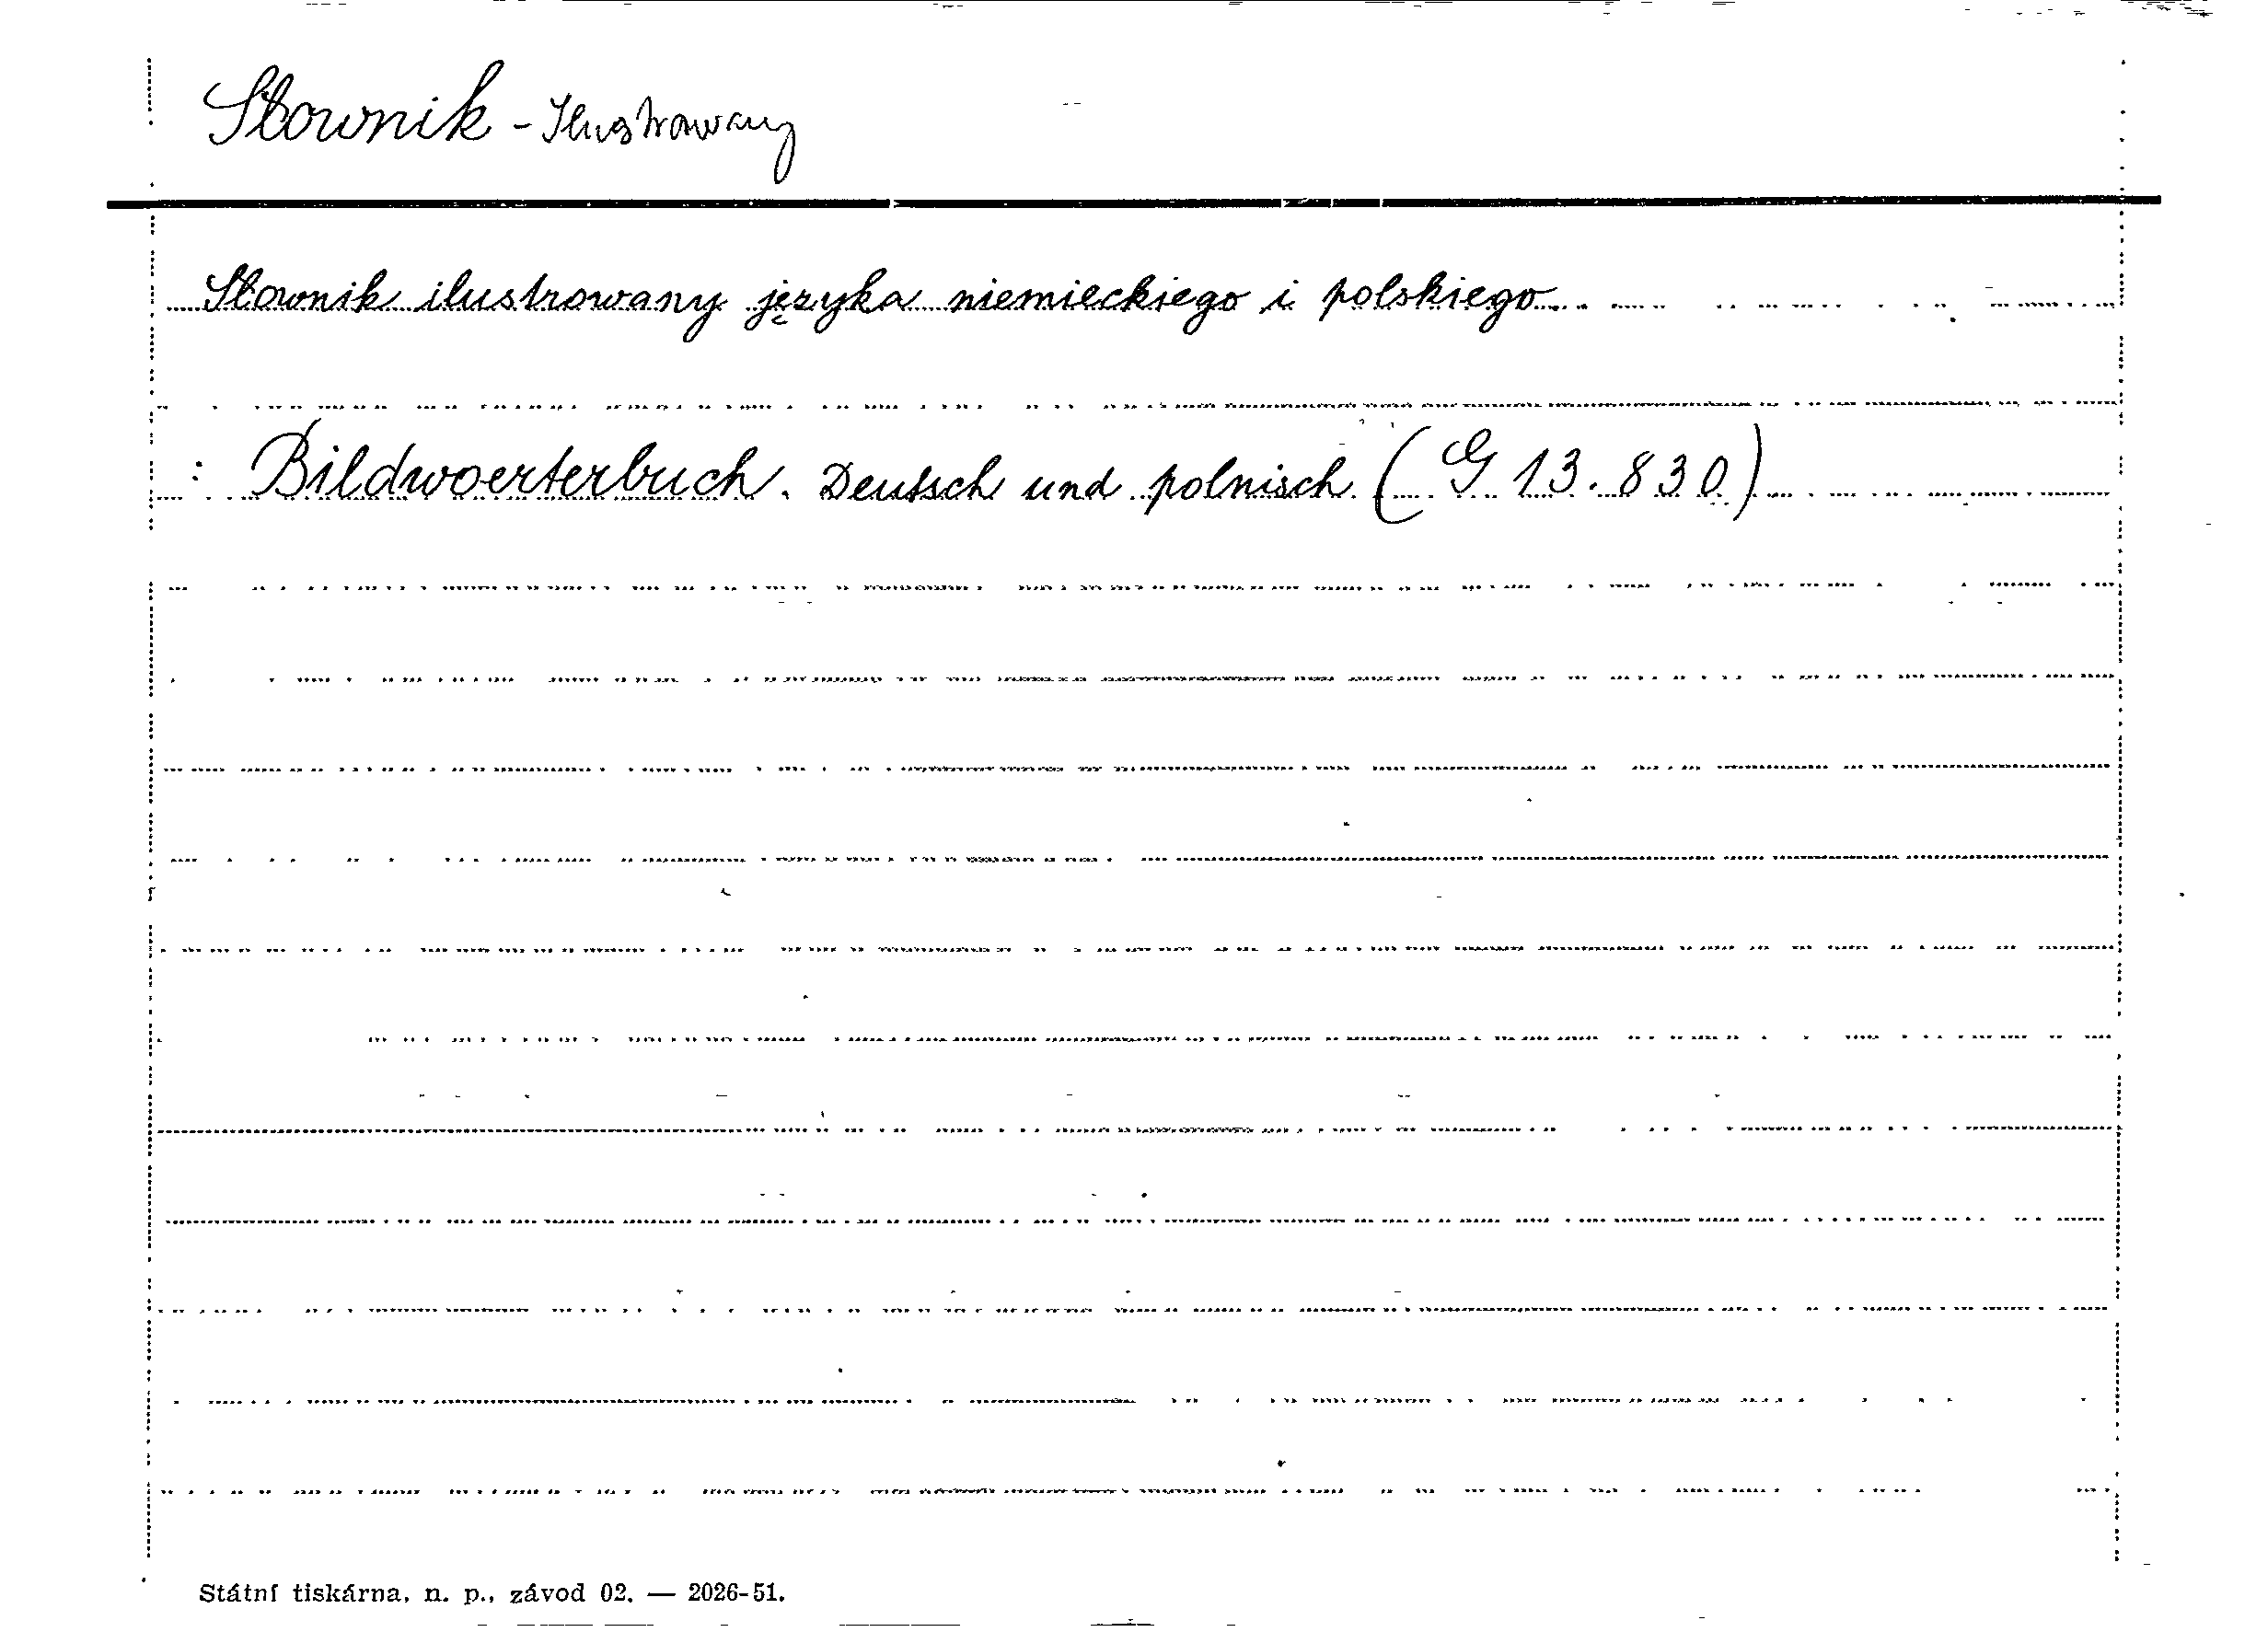 Słownik - Ilustrowany
Słownik ilustrowany języka niemieckiego i polskiego.
: Bildwoerterbuch. Deutsch und polnisch (G 13.830)
Státní tiskárna, n. p., závod 02. — 2026-51.